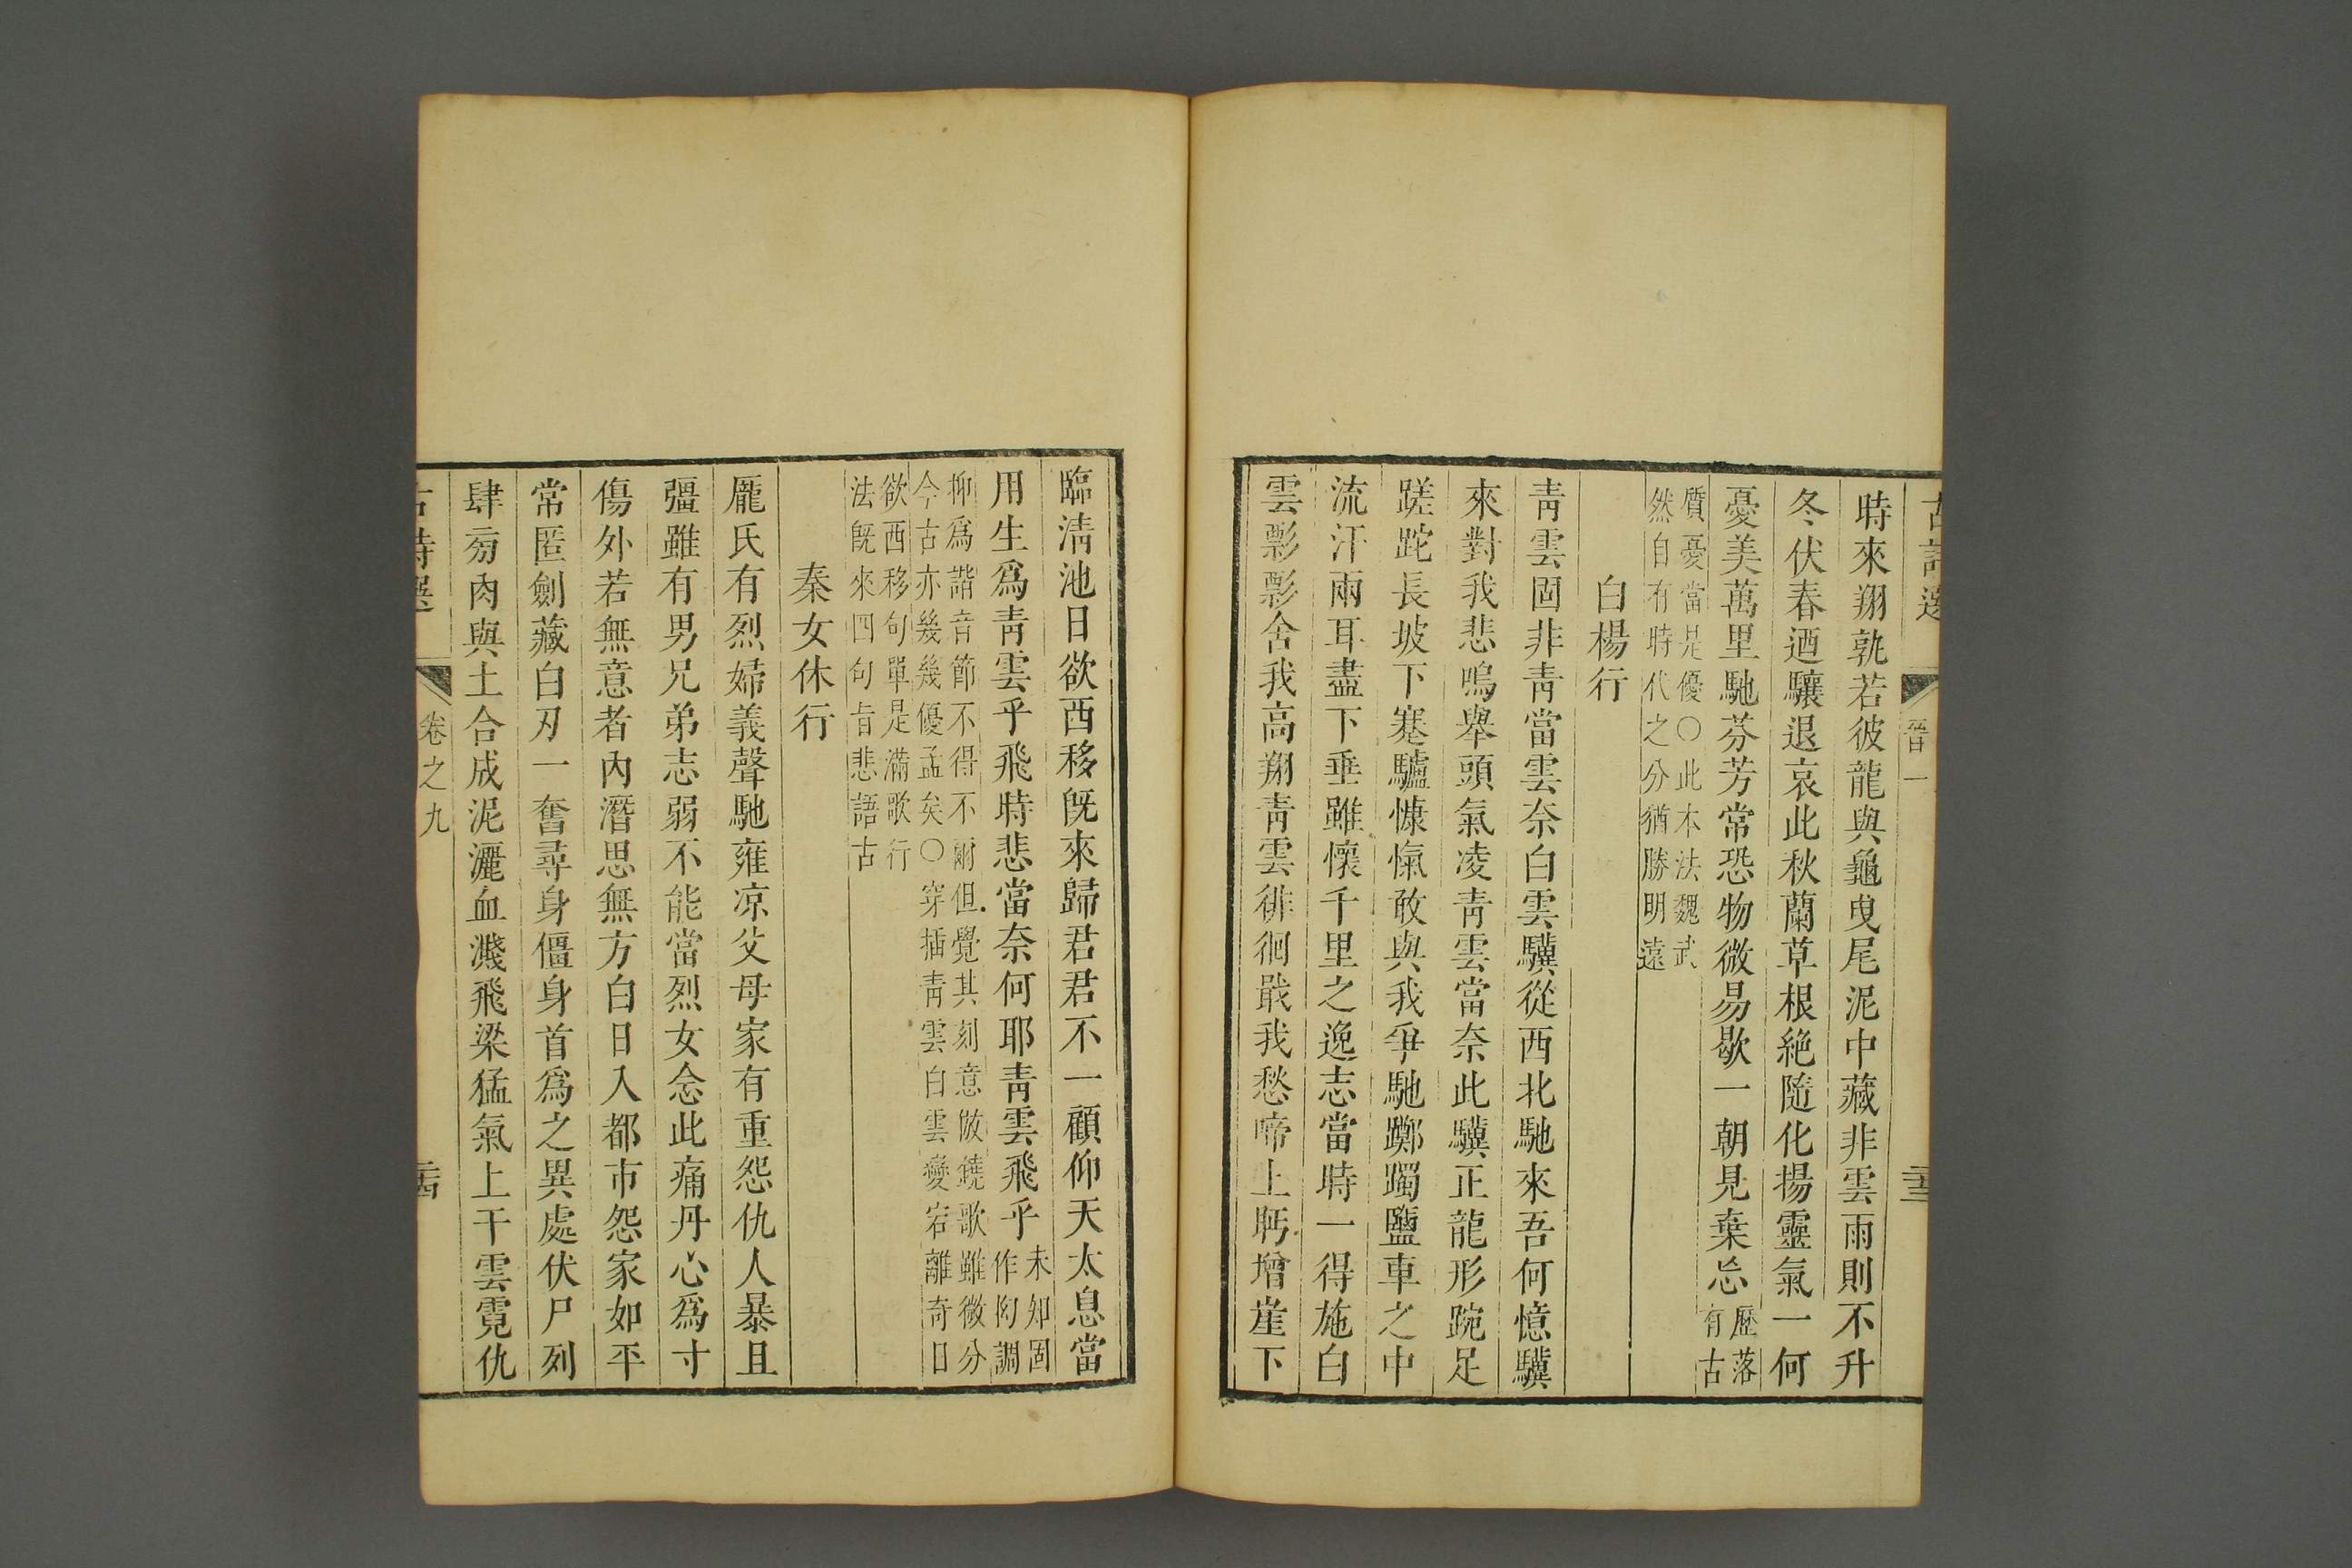 古詩選 晉一 二十三
時來翔孰若彼龍與龜曳尾泥中藏非雲雨則不升
冬伏春迺驤退哀此秋蘭草根絶隨化揚靈氣一何
憂美萬里馳芬芳常恐物微易歇一朝見棄忘歷落有古
質憂當是優○此本法魏武
然自有時代之分猶勝明遠
白楊行
青雲固非青當雲奈白雲驥從西北馳來吾何憶驥
來對我悲鳴舉頭氣凌青雲當奈此驥正龍形踠足
蹉跎長坡下蹇驢慷慨敢與我爭馳躑躅鹽車之中
流汗兩耳盡下垂雖懷千里之逸志當時一得施白
雲影影舍我高翔青雲徘徊戢我愁啼上眄增崖下
臨清池日欲西移既來歸君君不一顧仰天太息當
用生爲青雲乎飛時悲當奈何耶青雲飛乎未知固作拘調
抑爲諧音節不得不爾但覺其刻意倣鐃歌雖微分
今古亦幾幾優孟矣○穿插青雲白雲變宕離奇日
欲西移句單是滿歌行
法既來四句旨悲語古
秦女休行
龐氏有烈婦義聲馳雍凉父母家有重怨仇人暴且
彊雖有男兄弟志弱不能當烈女念此痛丹心爲寸
傷外若無意者內潛思無方白日入都市怨家如平
常匿劍藏白刃一奮尋身僵身首爲之異處伏尸列
肆旁肉與土合成泥灑血濺飛梁猛氣上干雲霓仇
古詩選 卷之九 二十四